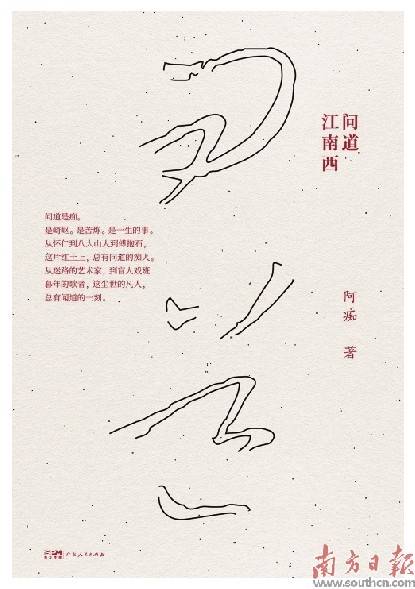 问道
江南西
问道是痴。
是崎岖。是苦修。是一生的事。
从怀仁到八大山人到傅抱石，
这片红土上，总有问道的痴人。
从迷路的艺术家，到盲人戏班
暮年的歌者，这尘世的凡人，
总有闻道的一刻。
著
广东人民出版社
南方日報
www.southcn.com